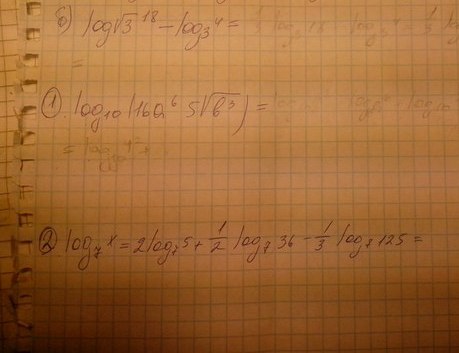 б) log√3 18 - log3 4 =
=
① log10 (16a^6 5√b^3) =
=
② log7 x = 2log7 5 + 1/2 log7 36 - 1/3 log7 125 =